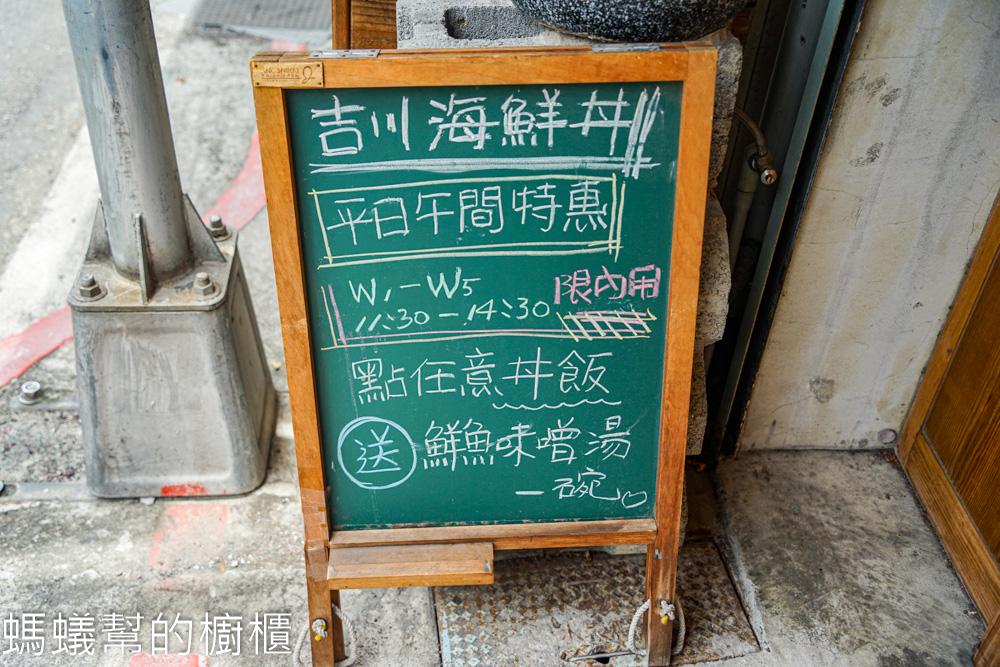 吉川海鮮丼
平日午間特惠
W1-W5 限內用
11:30-14:30
點任意丼飯
送 鮮魚味噌湯
一碗
螞蟻幫的櫥櫃